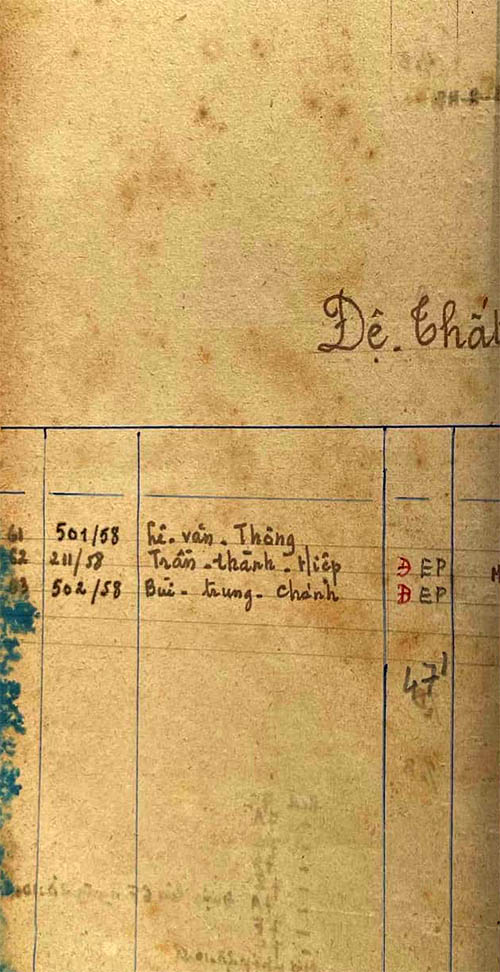 Đệ. Thất
61 501/58 Lê. văn. Thông
62 211/58 Trần. thành. Hiệp Đ EP
63 502/58 Bùi. trung. Chánh Đ EP
47